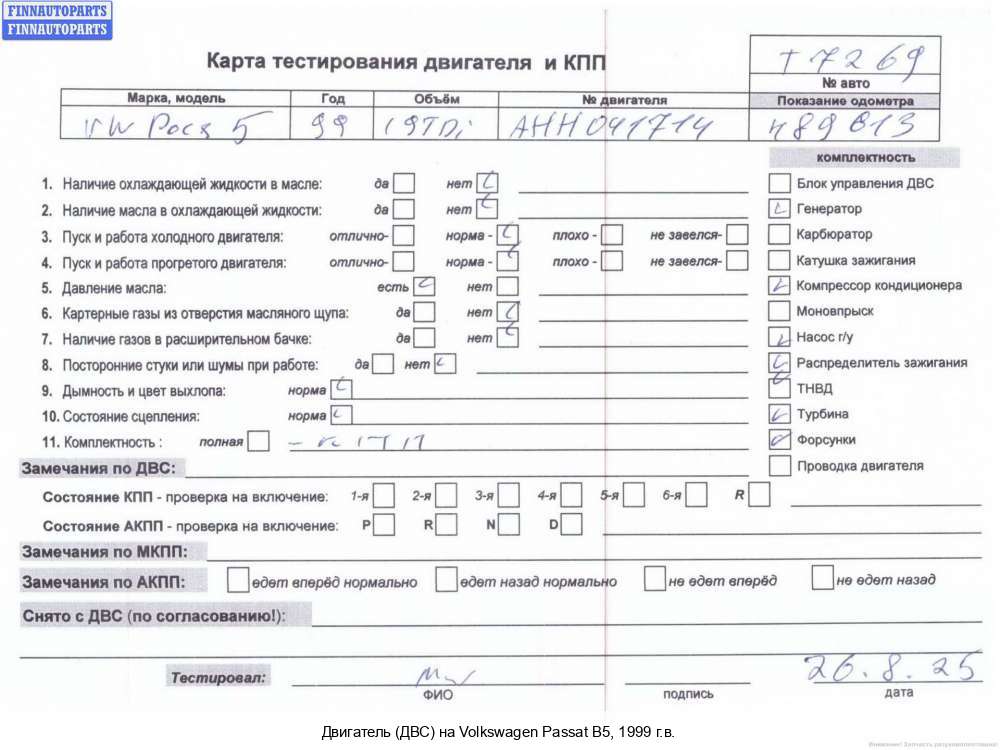 FINNAUTOPARTS
FINNAUTOPARTS
Карта тестирования двигателя и КПП
T7269
№ авто
Марка, модель Год Объём № двигателя Показание одометра
VW 5 99 1,9TDi AHH041714 489613
комплектность
1. Наличие охлаждающей жидкости в масле: да нет
Блок управления ДВС
2. Наличие масла в охлаждающей жидкости: да нет
Генератор
3. Пуск и работа холодного двигателя: отлично- норма - плохо - не завелся-
Карбюратор
4. Пуск и работа прогретого двигателя: отлично- норма - плохо - не завелся-
Катушка зажигания
5. Давление масла: есть нет
Компрессор кондиционера
6. Картерные газы из отверстия масляного щупа: да нет
Моновпрыск
7. Наличие газов в расширительном бачке: да нет
Насос г/у
8. Посторонние стуки или шумы при работе: да нет
Распределитель зажигания
9. Дымность и цвет выхлопа: норма
ТНВД
10. Состояние сцепления: норма
Турбина
11. Комплектность : полная
Форсунки
Замечания по ДВС:
Проводка двигателя
Состояние КПП - проверка на включение: 1-я 2-я 3-я 4-я 5-я 6-я R
Состояние АКПП - проверка на включение: P R N D
Замечания по МКПП:
Замечания по АКПП: едет вперёд нормально едет назад нормально не едет вперёд не едет назад
Снято с ДВС (по согласованию!):
Тестировал: 26.8.25
ФИО подпись дата
Двигатель (ДВС) на Volkswagen Passat B5, 1999 г.в.